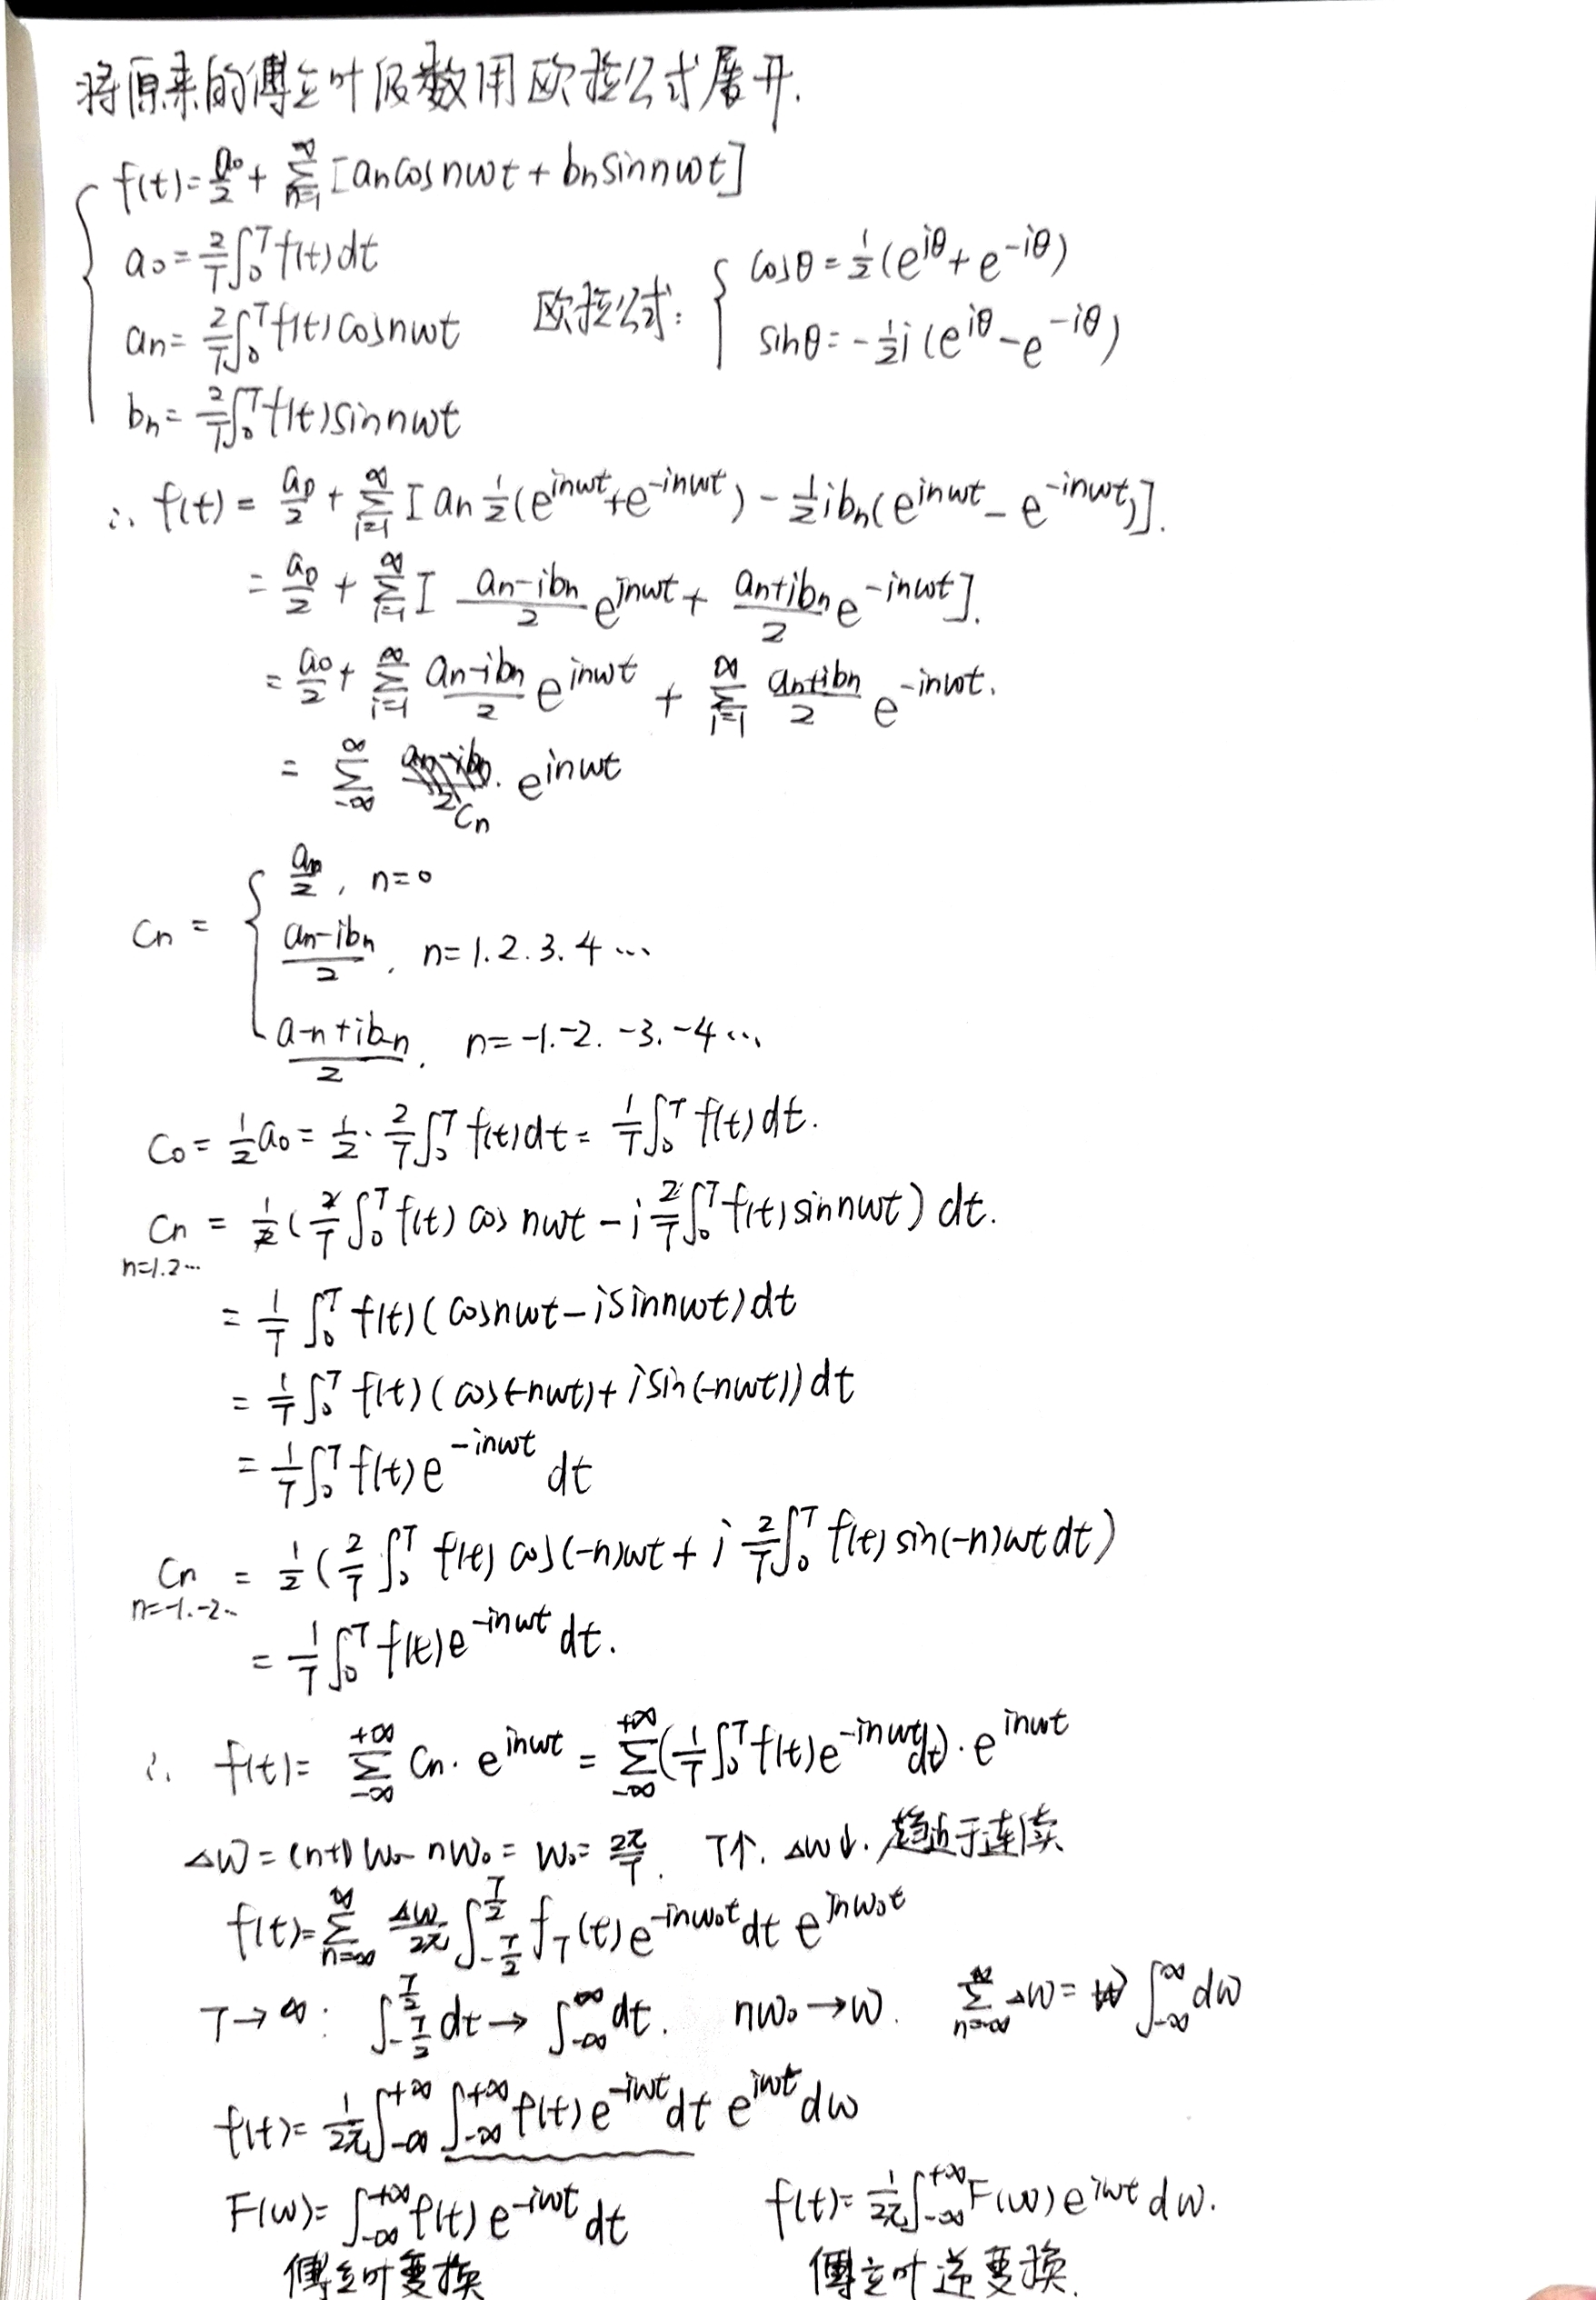 将原来的傅立叶级数用欧拉公式展开.
f(t)=a₀/2+∑_{n=1}^{∞}[aₙcosnωt+bₙsinnωt]
a₀=2/T∫₀ᵀf(t)dt
aₙ=2/T∫₀ᵀf(t)cosnωt
bₙ=2/T∫₀ᵀf(t)sinnωt
欧拉公式:
cosθ=1/2(e^{iθ}+e^{-iθ})
sinθ=-1/2i(e^{iθ}-e^{-iθ})
∴ f(t)=a₀/2+∑_{i=1}^{∞}[aₙ1/2(e^{inωt}+e^{-inωt})-1/2ibₙ(e^{inωt}-e^{-inωt})].
=a₀/2+∑_{i=1}^{∞}[(aₙ-ibₙ)/2 e^{inωt}+(aₙ+ibₙ)/2 e^{-inωt}].
=a₀/2+∑_{i=1}^{∞}(aₙ-ibₙ)/2 e^{inωt}+∑_{i=1}^{∞}(aₙ+ibₙ)/2 e^{-inωt}.
=∑_{-∞}^{∞} Cₙ·e^{inωt}
Cₙ=
a₀/2, n=0
(aₙ-ibₙ)/2, n=1.2.3.4…
(a₋ₙ+ib₋ₙ)/2, n=-1.-2.-3.-4…
C₀=1/2a₀=1/2·2/T∫₀ᵀf(t)dt=1/T∫₀ᵀf(t)dt.
Cₙ=1/2(2/T∫₀ᵀf(t)cosnωt-i2/T∫₀ᵀf(t)sinnωt)dt.
n=1.2…
=1/T∫₀ᵀf(t)(cosnωt-isinnωt)dt
=1/T∫₀ᵀf(t)(cos(-nωt)+isin(-nωt))dt
=1/T∫₀ᵀf(t)e^{-inωt}dt
Cₙ=1/2(2/T∫₀ᵀf(t)cos(-n)ωt+i2/T∫₀ᵀf(t)sin(-n)ωtdt)
n=-1.-2..
=1/T∫₀ᵀf(t)e^{-inωt}dt.
∴ f(t)=∑_{-∞}^{+∞}Cₙ·e^{inωt}=∑_{-∞}^{+∞}(1/T∫₀ᵀf(t)e^{-inωt}dt)·e^{inωt}
△ω=(n+1)ω₀-nω₀=ω₀=2π/T. T↑. △ω↓. 趋近于连续
f(t)=∑_{n=-∞}^{∞}△ω/2π∫_{-T/2}^{T/2}f_T(t)e^{-inω₀t}dt e^{inω₀t}
T→∞: ∫_{-T/2}^{T/2}dt→∫_{-∞}^{∞}dt. nω₀→ω. ∑_{n=-∞}^{∞}△ω=∫_{-∞}^{∞}dω
f(t)=1/2π∫_{-∞}^{+∞}∫_{-∞}^{+∞}f(t)e^{-iωt}dt e^{iωt}dω
F(ω)=∫_{-∞}^{+∞}f(t)e^{-iωt}dt f(t)=1/2π∫_{-∞}^{+∞}F(ω)e^{iωt}dω.
傅立叶变换 傅立叶逆变换.